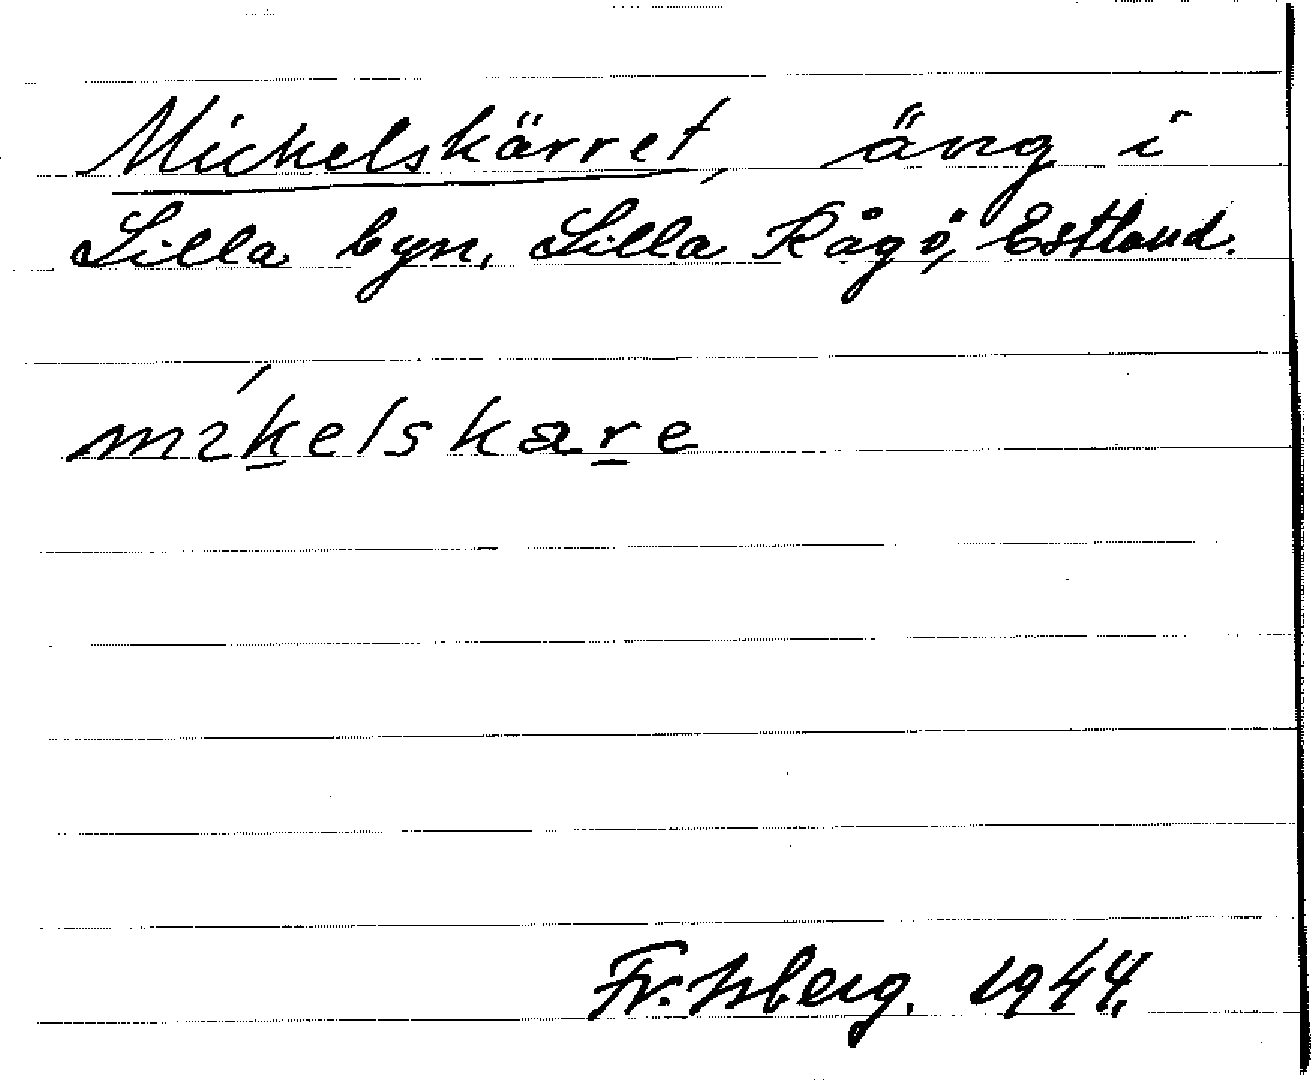 Michelskärret, äng i
Lilla byn, Lilla Rågö, Estland.
mi´kelskare
Fr. Isberg. 1944.